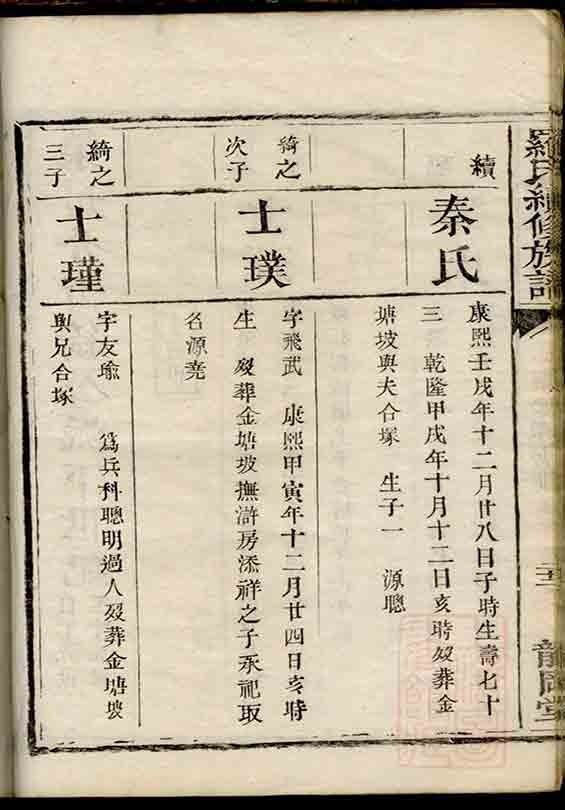 羅氏續修族譜
五
龍岡堂
續
秦氏
康熙壬戌年十二月廿八日子時生壽七十
三 乾隆甲戌年十月十二日亥時歿葬金
塘坡與夫合塚 生子一 源聰
綺之
次子
士璞
字飛武 康熙甲寅年十二月廿四日亥時
生 歿葬金塘坡撫滸房添祥之子承祀取
名源堯
綺之
三子
士瑾
字友瑜 為兵科聰明過人歿葬金塘坡
與兄合塚